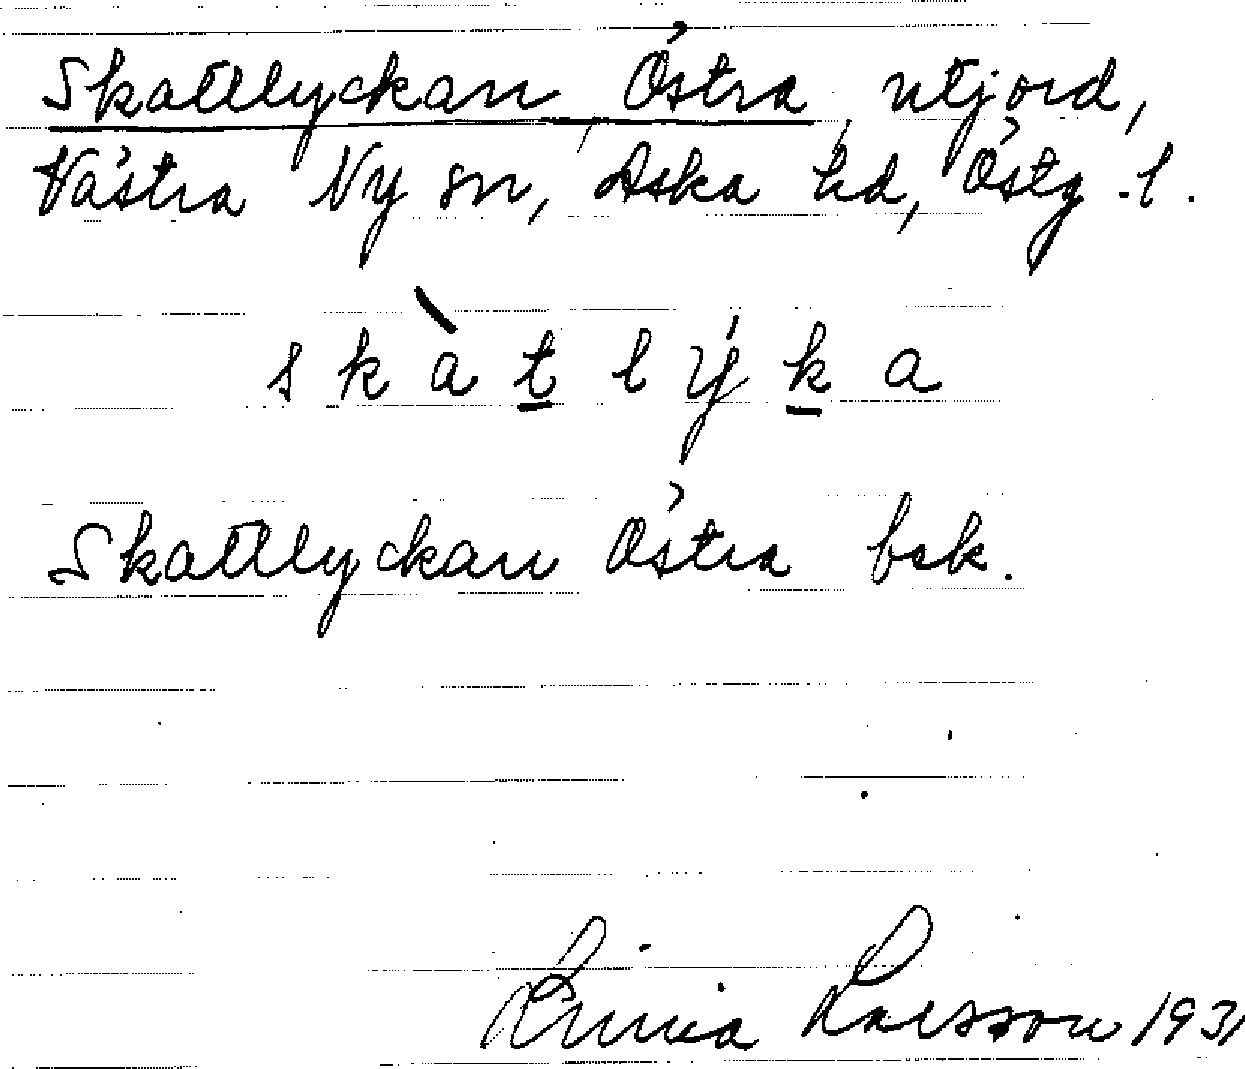 Skattlyckan, Östra, utjord,
Västra Ny sn, Aska hd, Östg.l.
skàtlýka
Skattlyckan Östra bsk.
Linnea Larsson 1931